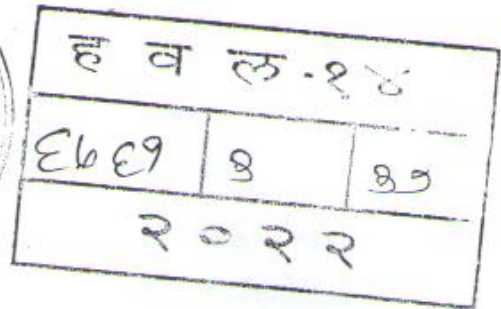 ह व ल - १४
६७६१ ३ ३१
२०२२